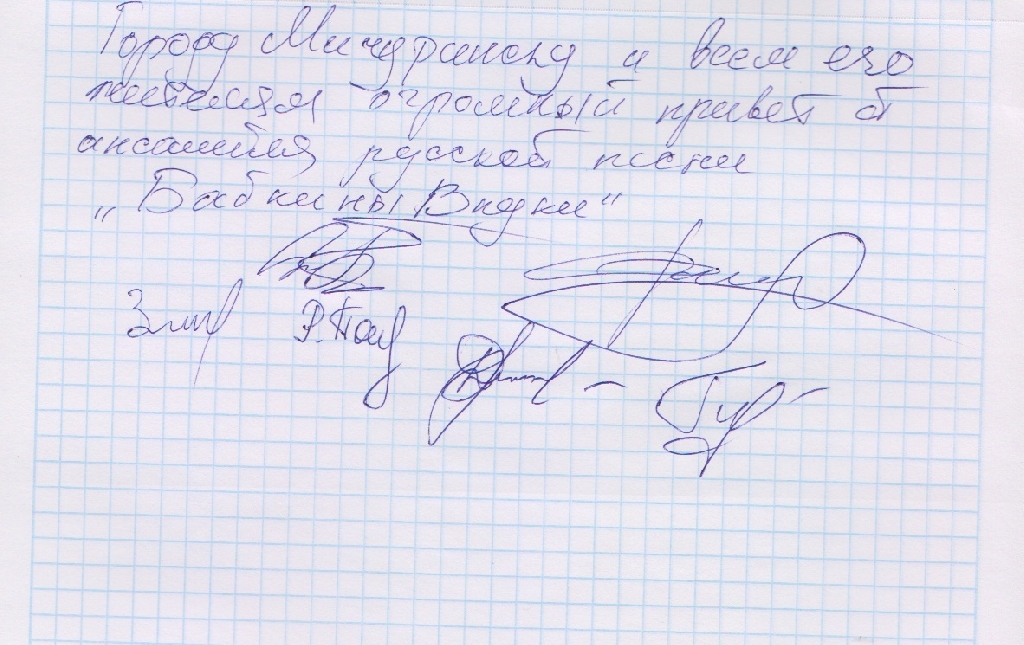 Городу Мичуринску и всем его
жителям огромный привет от
ансамбля русской песни
„Бабкины Внуки“
Р. Пол